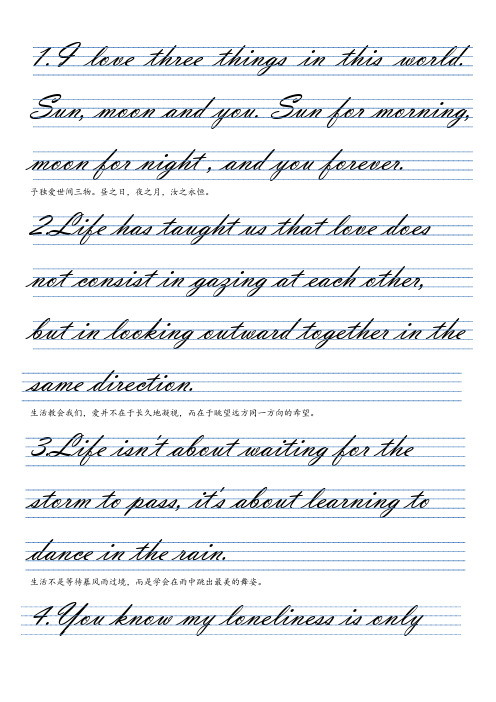 1. I love three things in this world.
Sun, moon and you. Sun for morning,
moon for night , and you forever.
予独爱世间三物。昼之日，夜之月，汝之永恒。
2.Life has taught us that love does
not consist in gazing at each other,
but in looking outward together in the
same direction.
生活教会我们，爱并不在于长久地凝视，而在于眺望远方同一方向的希望。
3.Life isn't about waiting for the
storm to pass, it's about learning to
dance in the rain.
生活不是等待暴风雨过境，而是学会在雨中跳出最美的舞姿。
4.You know my loneliness is only